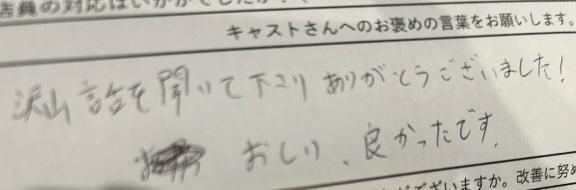 店員の対応はいかがでしたか
キャストさんへのお褒めの言葉をお願いします。
沢山話を聞いて下さりありがとうございました!
おしり、良かったです。
ございますか。改善に努め